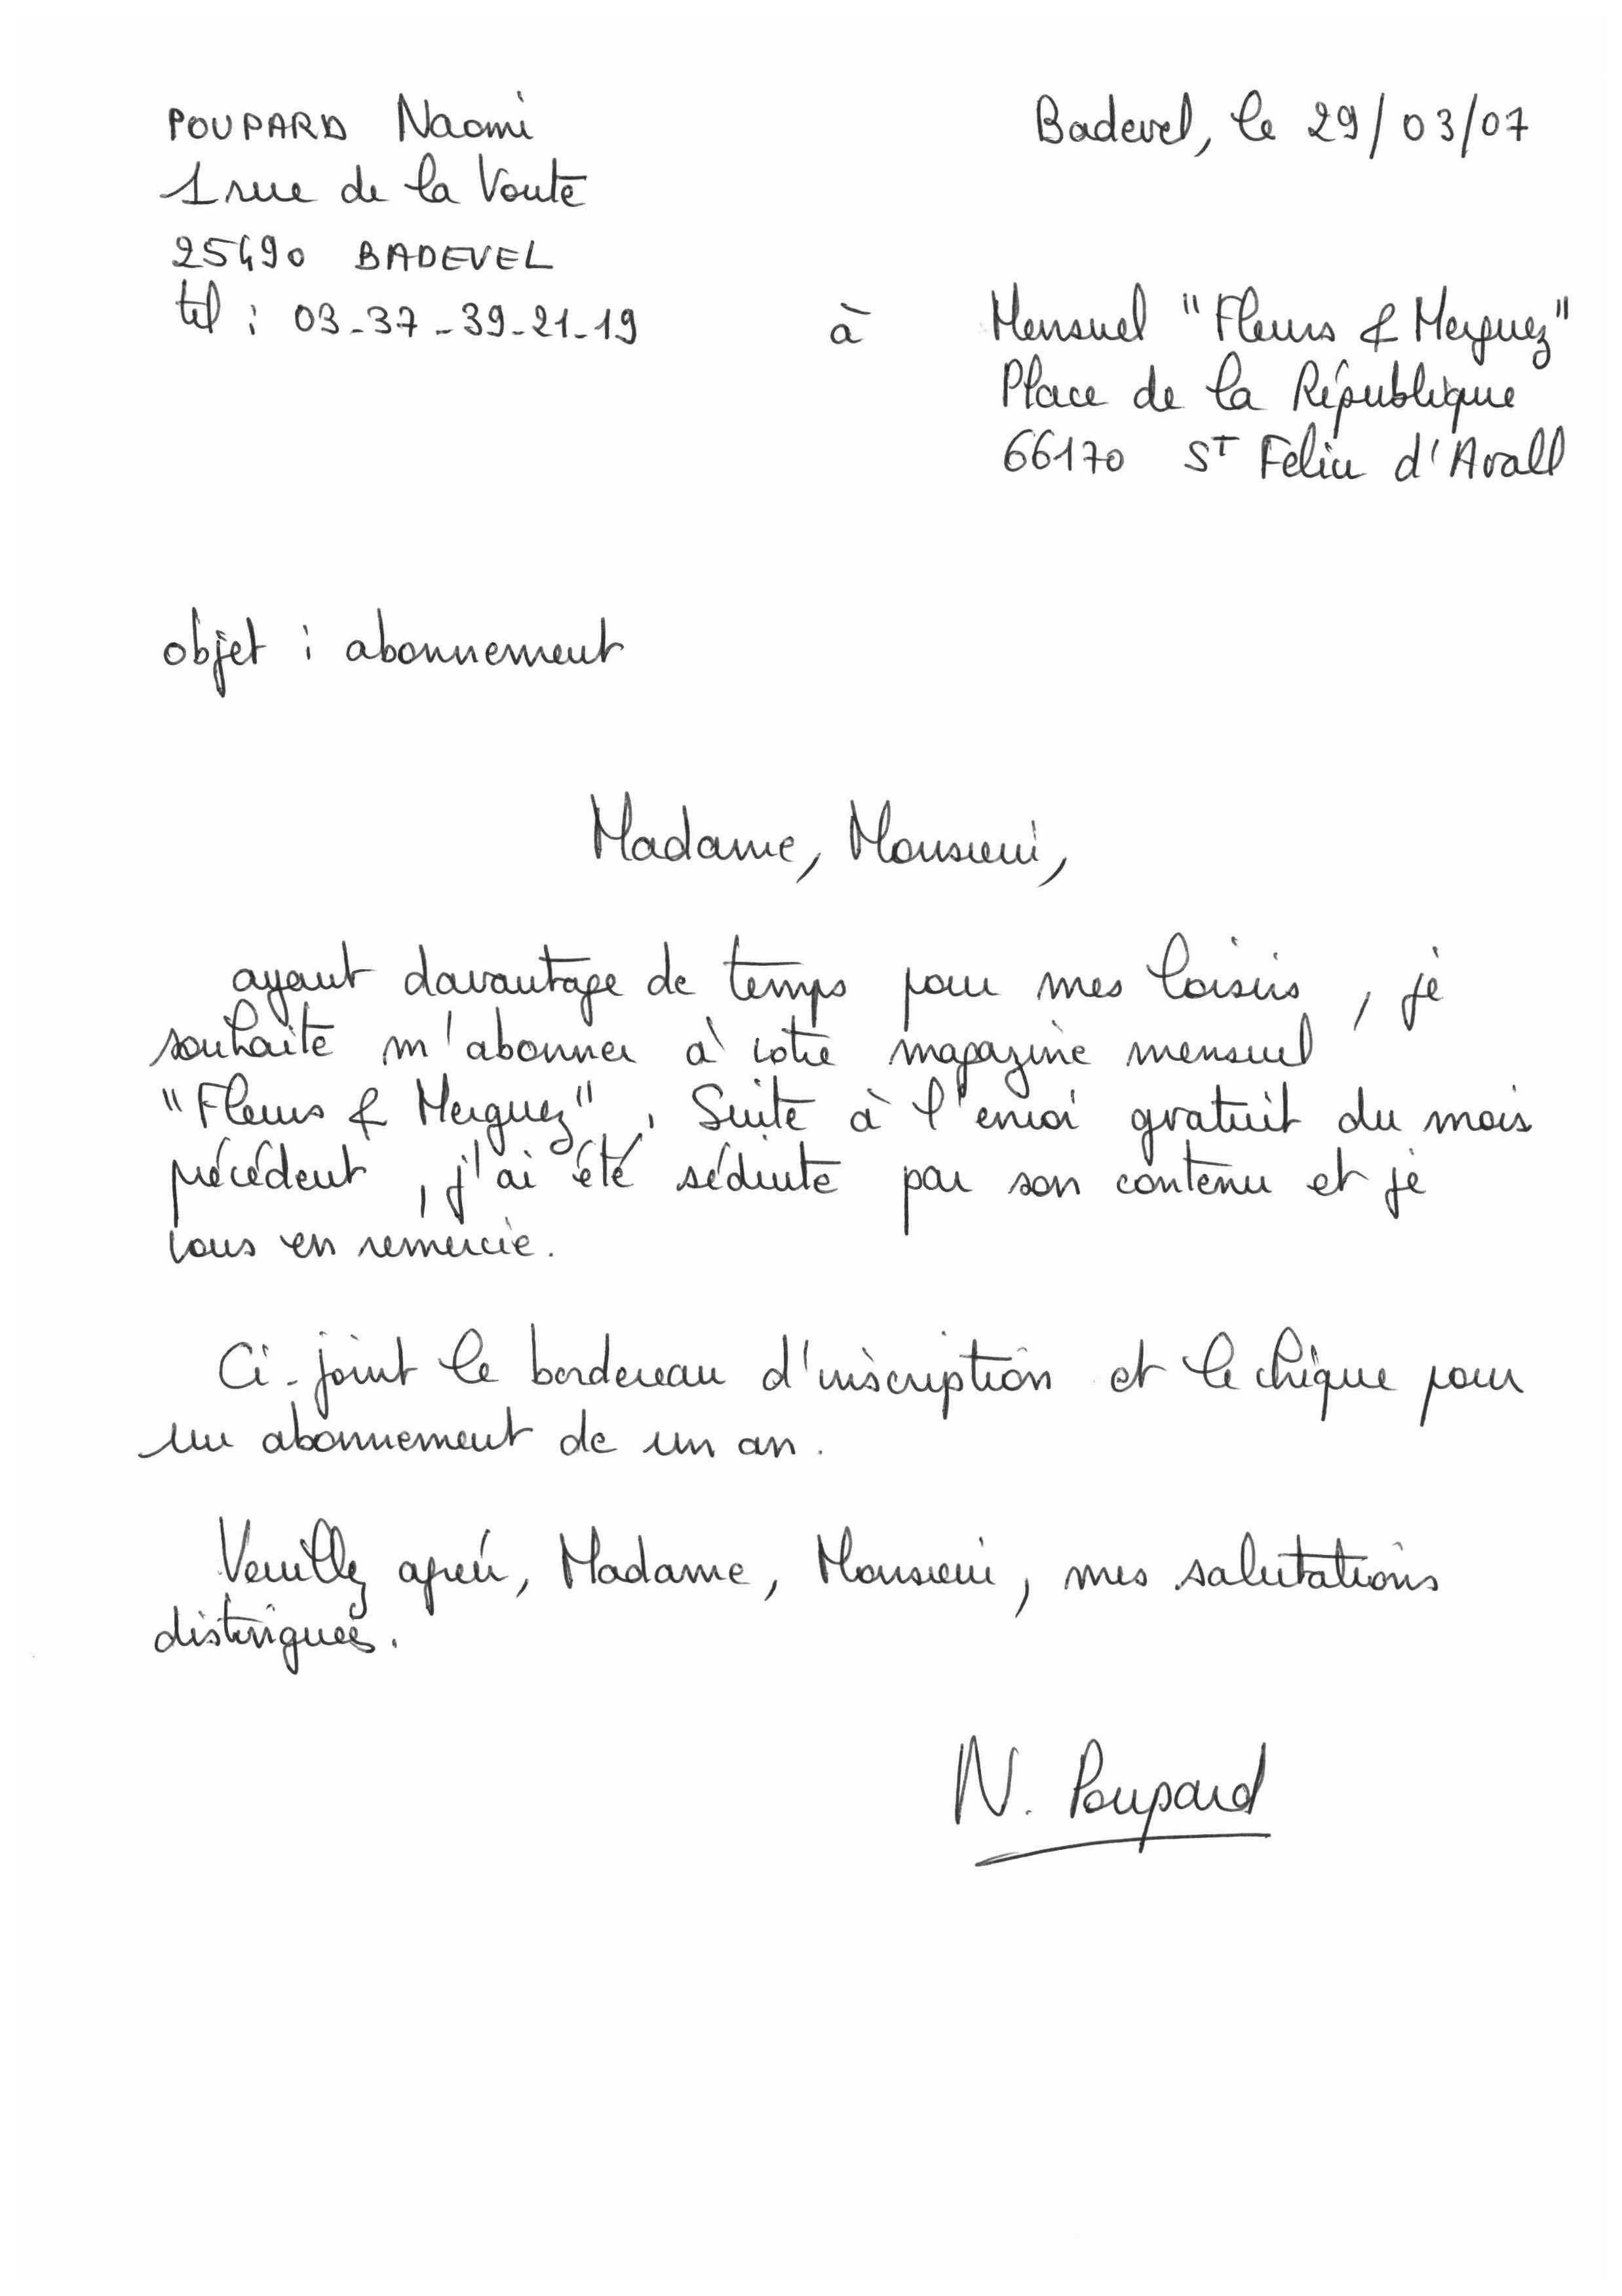 POUPARD Naomi
Badevel, le 29/03/07
1 rue de la Voute
25490 BADEVEL
tel : 03-37-39-21-19
à
Mensuel "Fleurs & Merguez"
Place de la République
66170 ST Feliu d'Avall
objet : abonnement
Madame, Monsieur,
ayant davantage de temps pour mes loisirs, je
souhaite m'abonner à votre magazine mensuel
"Fleurs & Merguez". Suite à l'envoi gratuit du mois
précédent, j'ai été séduite par son contenu et je
vous en remercie.
Ci-joint le bordereau d'inscription et le chèque pour
un abonnement de un an.
Veuillez agréer, Madame, Monsieur, mes salutations
distinguées.
N. Poupard